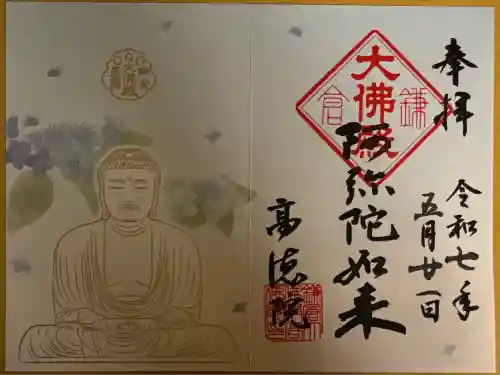 奉拝
令和七年
五月廿一日
大佛殿
鎌倉
阿弥陀如来
高徳院